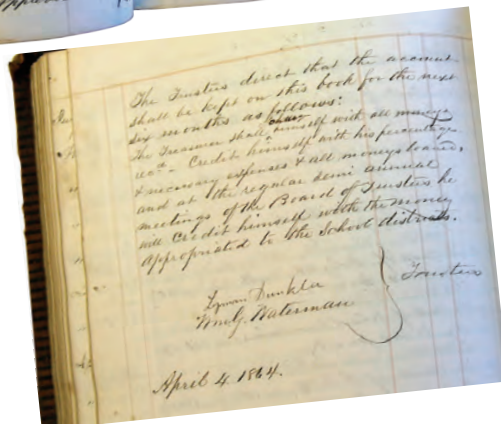 The Trustees direct that the account
shall be kept on this book for the next
six months as follows:
The Treasurer shall charge himself with all moneys
rec.d - Credit himself with his percentage
& necessary expenses & all moneys loaned,
and at the regular semi annual
meetings of the Board of Trustees he
will Credit himself with the money
appropriated to the School districts.
Lyman Dunklee
Wm G. Waterman
Trustees
April 4. 1864.